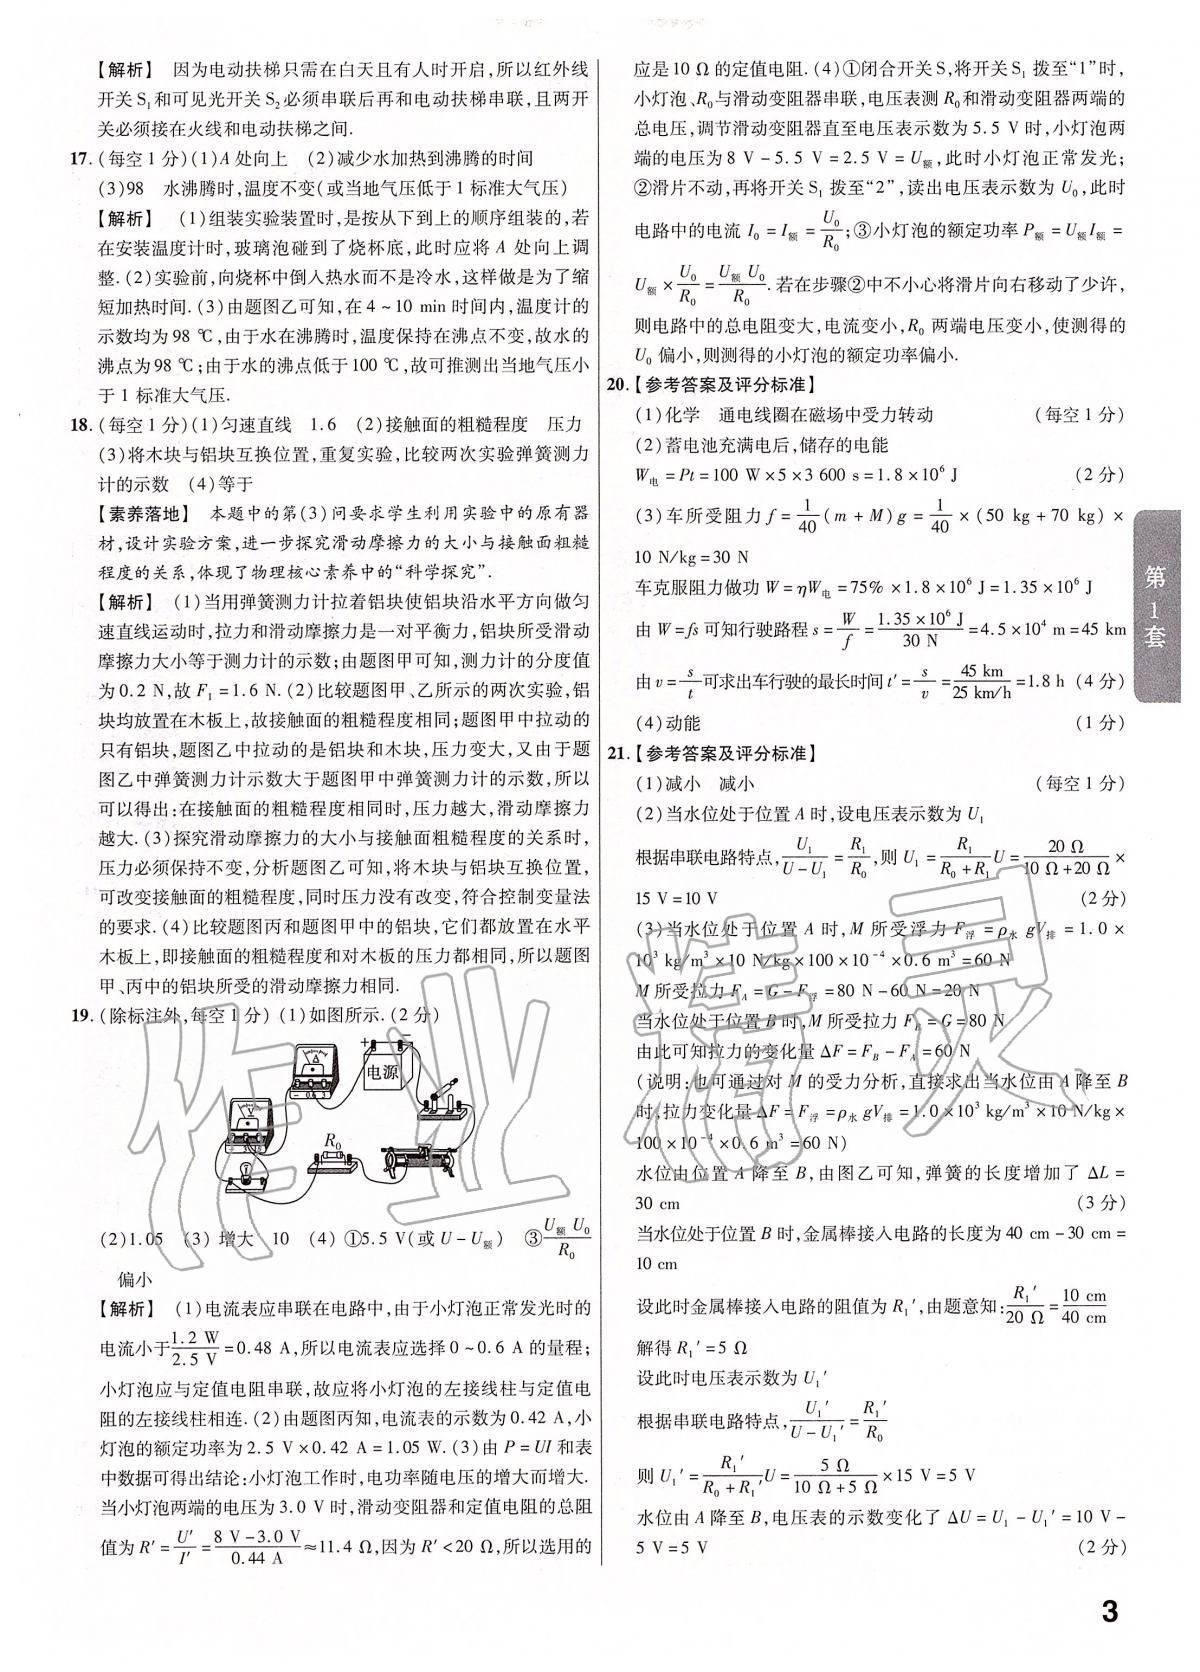 【解析】 因为电动扶梯只需在白天且有人时开启,所以红外线
开关 S₁和可见光开关 S₂必须串联后再和电动扶梯串联,且两开
关必须接在火线和电动扶梯之间.
17. (每空 1 分)(1)A 处向上 (2)减少水加热到沸腾的时间
(3)98 水沸腾时,温度不变(或当地气压低于 1 标准大气压)
【解析】 (1)组装实验装置时,是按从下到上的顺序组装的,若
在安装温度计时,玻璃泡碰到了烧杯底,此时应将 A 处向上调
整.(2)实验前,向烧杯中倒入热水而不是冷水,这样做是为了缩
短加热时间.(3)由题图乙可知,在 4~10 min 时间内,温度计的
示数均为 98 ℃,由于水在沸腾时,温度保持在沸点不变,故水的
沸点为 98 ℃;由于水的沸点低于 100 ℃,故可推测出当地气压小
于 1 标准大气压.
18. (每空 1 分)(1)匀速直线 1.6 (2)接触面的粗糙程度 压力
(3)将木块与铝块互换位置,重复实验,比较两次实验弹簧测力
计的示数 (4)等于
【素养落地】 本题中的第(3)问要求学生利用实验中的原有器
材,设计实验方案,进一步探究滑动摩擦力的大小与接触面粗糙
程度的关系,体现了物理核心素养中的“科学探究”.
【解析】 (1)当用弹簧测力计拉着铝块使铝块沿水平方向做匀
速直线运动时,拉力和滑动摩擦力是一对平衡力,铝块所受滑动
摩擦力大小等于测力计的示数;由题图甲可知,测力计的分度值
为 0.2 N,故 F₁=1.6 N.(2)比较题图甲、乙所示的两次实验,铝
块均放置在木板上,故接触面的粗糙程度相同;题图甲中拉动的
只有铝块,题图乙中拉动的是铝块和木块,压力变大,又由于题
图乙中弹簧测力计示数大于题图甲中弹簧测力计的示数,所以
可以得出:在接触面的粗糙程度相同时,压力越大,滑动摩擦力
越大.(3)探究滑动摩擦力的大小与接触面粗糙程度的关系时,
压力必须保持不变,分析题图乙可知,将木块与铝块互换位置,
可改变接触面的粗糙程度,同时压力没有改变,符合控制变量法
的要求.(4)比较题图丙和题图甲中的铝块,它们都放置在水平
木板上,即接触面的粗糙程度和对木板的压力都相同,所以题图
甲、丙中的铝块所受的滑动摩擦力相同.
19. (除标注外,每空 1 分) (1)如图所示.(2 分)
电源
R₀
(2)1.05 (3) 增大 10 (4) ①5.5 V(或 U-U额) ③U额 U₀/R₀
偏小
【解析】 (1)电流表应串联在电路中,由于小灯泡正常发光时的
电流小于1.2 W/2.5 V=0.48 A,所以电流表应选择 0~0.6 A 的量程;
小灯泡应与定值电阻串联,故应将小灯泡的左接线柱与定值电
阻的左接线柱相连.(2)由题图丙知,电流表的示数为 0.42 A,小
灯泡的额定功率为 2.5 V×0.42 A=1.05 W.(3)由 P=UI 和表
中数据可得出结论:小灯泡工作时,电功率随电压的增大而增大.
当小灯泡两端的电压为 3.0 V 时,滑动变阻器和定值电阻的总阻
值为 R′=U′/I′=8 V-3.0 V/0.44 A≈11.4 Ω,因为 R′<20 Ω,所以选用的
应是 10 Ω 的定值电阻.(4)①闭合开关 S,将开关 S₁ 拨至“1”时,
小灯泡、R₀与滑动变阻器串联,电压表测 R₀和滑动变阻器两端的
总电压,调节滑动变阻器直至电压表示数为 5.5 V 时,小灯泡两
端的电压为 8 V-5.5 V=2.5 V=U额,此时小灯泡正常发光;
②滑片不动,再将开关 S₁ 拨至“2”,读出电压表示数为 U₀,此时
电路中的电流 I₀=I额=U₀/R₀;③小灯泡的额定功率 P额=U额I额=
U额×U₀/R₀=U额 U₀/R₀.若在步骤②中不小心将滑片向右移动了少许,
则电路中的总电阻变大,电流变小,R₀ 两端电压变小,使测得的
U₀ 偏小,则测得的小灯泡的额定功率偏小.
20.【参考答案及评分标准】
(1)化学 通电线圈在磁场中受力转动 (每空 1 分)
(2)蓄电池充满电后,储存的电能
W电=Pt=100 W×5×3 600 s=1.8×10⁶ J (2 分)
(3)车所受阻力 f=1/40(m+M)g=1/40×(50 kg+70 kg)×
10 N/kg=30 N
车克服阻力做功 W=ηW电=75%×1.8×10⁶ J=1.35×10⁶ J
由 W=fs 可知行驶路程 s=W/f=1.35×10⁶ J/30 N=4.5×10⁴ m=45 km
由 v=s/t可求出车行驶的最长时间 t′=s/v=45 km/25 km/h=1.8 h (4 分)
(4)动能 (1 分)
21.【参考答案及评分标准】
(1)减小 减小 (每空 1 分)
(2)当水位处于位置 A 时,设电压表示数为 U₁
根据串联电路特点,U₁/U-U₁=R₁/R₀,则 U₁=R₁/R₀+R₁U=20 Ω/10 Ω+20 Ω×
15 V=10 V (2 分)
(3)当水位处于位置 A 时,M 所受浮力 F浮=ρ水 gV排=1.0×
10³ kg/m³×10 N/kg×100×10⁻⁴×0.6 m³=60 N
M 所受拉力 F_A=G-F浮=80 N-60 N=20 N
当水位处于位置 B 时,M 所受拉力 F_B=G=80 N
由此可知拉力的变化量 ΔF=F_B-F_A=60 N
(说明:也可通过对 M 的受力分析,直接求出当水位由 A 降至 B
时,拉力变化量 ΔF=F浮=ρ水 gV排=1.0×10³ kg/m³×10 N/kg×
100×10⁻⁴×0.6 m³=60 N)
水位由位置 A 降至 B,由图乙可知,弹簧的长度增加了 ΔL=
30 cm (3 分)
当水位处于位置 B 时,金属棒接入电路的长度为 40 cm-30 cm=
10 cm
设此时金属棒接入电路的阻值为 R₁′,由题意知:R₁′/20 Ω=10 cm/40 cm
解得 R₁′=5 Ω
设此时电压表示数为 U₁′
根据串联电路特点,U₁′/U-U₁′=R₁′/R₀
则 U₁′=R₁′/R₀+R₁′U=5 Ω/10 Ω+5 Ω×15 V=5 V
水位由 A 降至 B,电压表的示数变化了 ΔU=U₁-U₁′=10 V-
5 V=5 V (2 分)
第1套
作业精灵
3